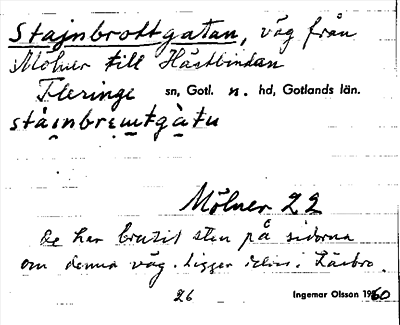 Stajnbrottgatan, väg från
Mölner till Hästlindan
Fleringe sn, Gotl. n. hd, Gotlands län.
stàinbrɛmtgàtu
Mölner 22
De har brutit sten på sidorna
om denna väg. Ligger i Lärbro.
26 Ingemar Olsson 1960